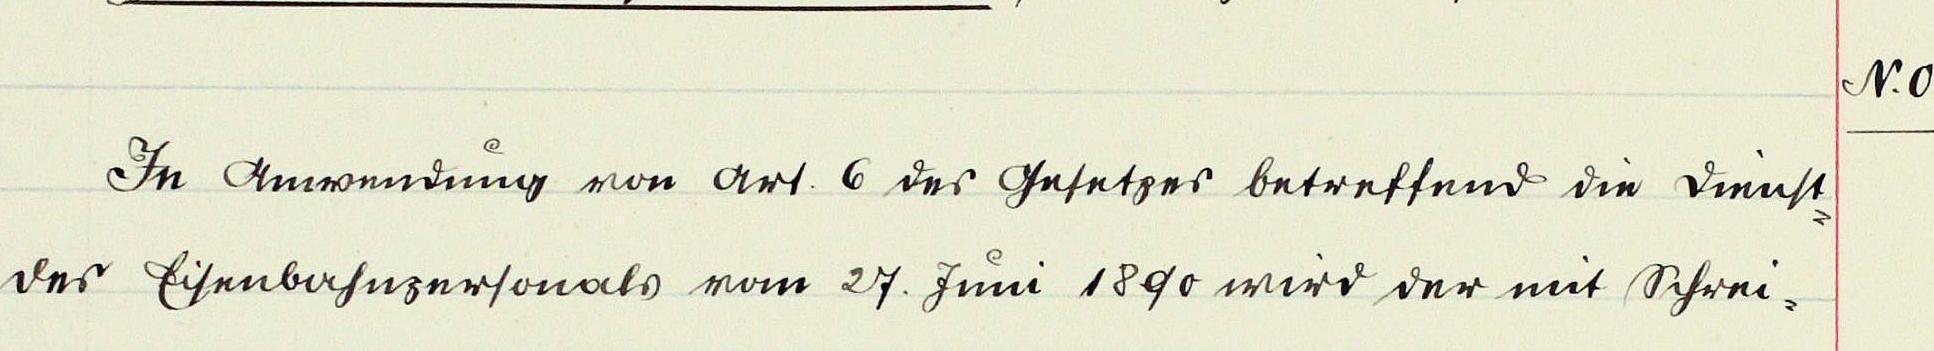 N. O
In Anwendung von Art. 6 des Gesetzes betreffend die Dienst=
des Eisenbahnpersonals vom 27. Juni 1890 wird der mit Schrei=